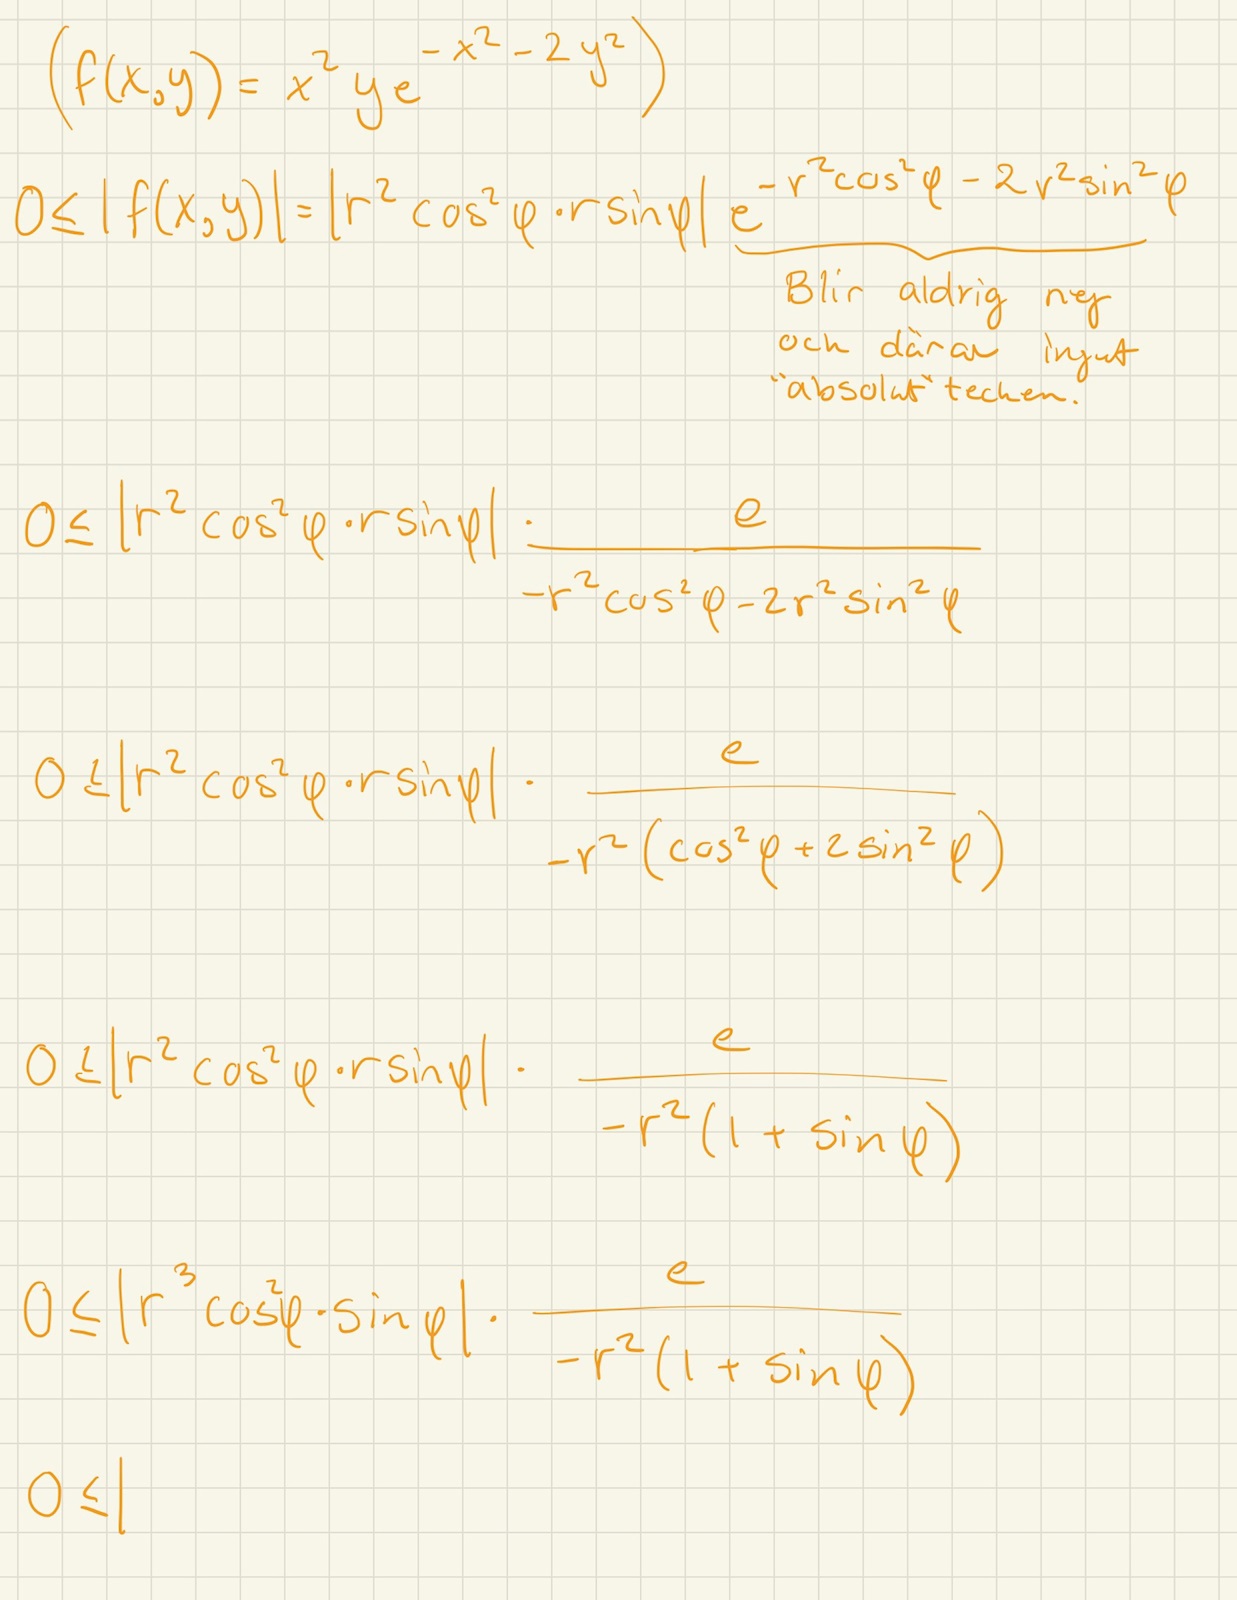 (f(x,y) = x² y e^(-x² - 2y²))
0 ≤ |f(x,y)| = |r² cos² φ · r sin φ| e^(-r² cos² φ - 2r² sin² φ)
Blir aldrig neg
och därav inget
"absolut" tecken.
0 ≤ |r² cos² φ · r sin φ| · e / (-r² cos² φ - 2r² sin² φ)
0 ≤ |r² cos² φ · r sin φ| · e / (-r² (cos² φ + 2 sin² φ))
0 ≤ |r² cos² φ · r sin φ| · e / (-r² (1 + sin φ))
0 ≤ |r³ cos² φ · sin φ| · e / (-r² (1 + sin φ))
0 ≤ |